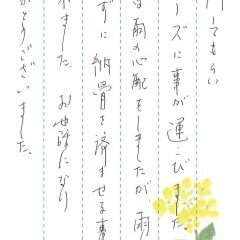 してもらい
ーズに事が運こびました
雨の心配をしましたが雨
ずに納骨を済ませる事
ました。お世話になり
がとうございました。